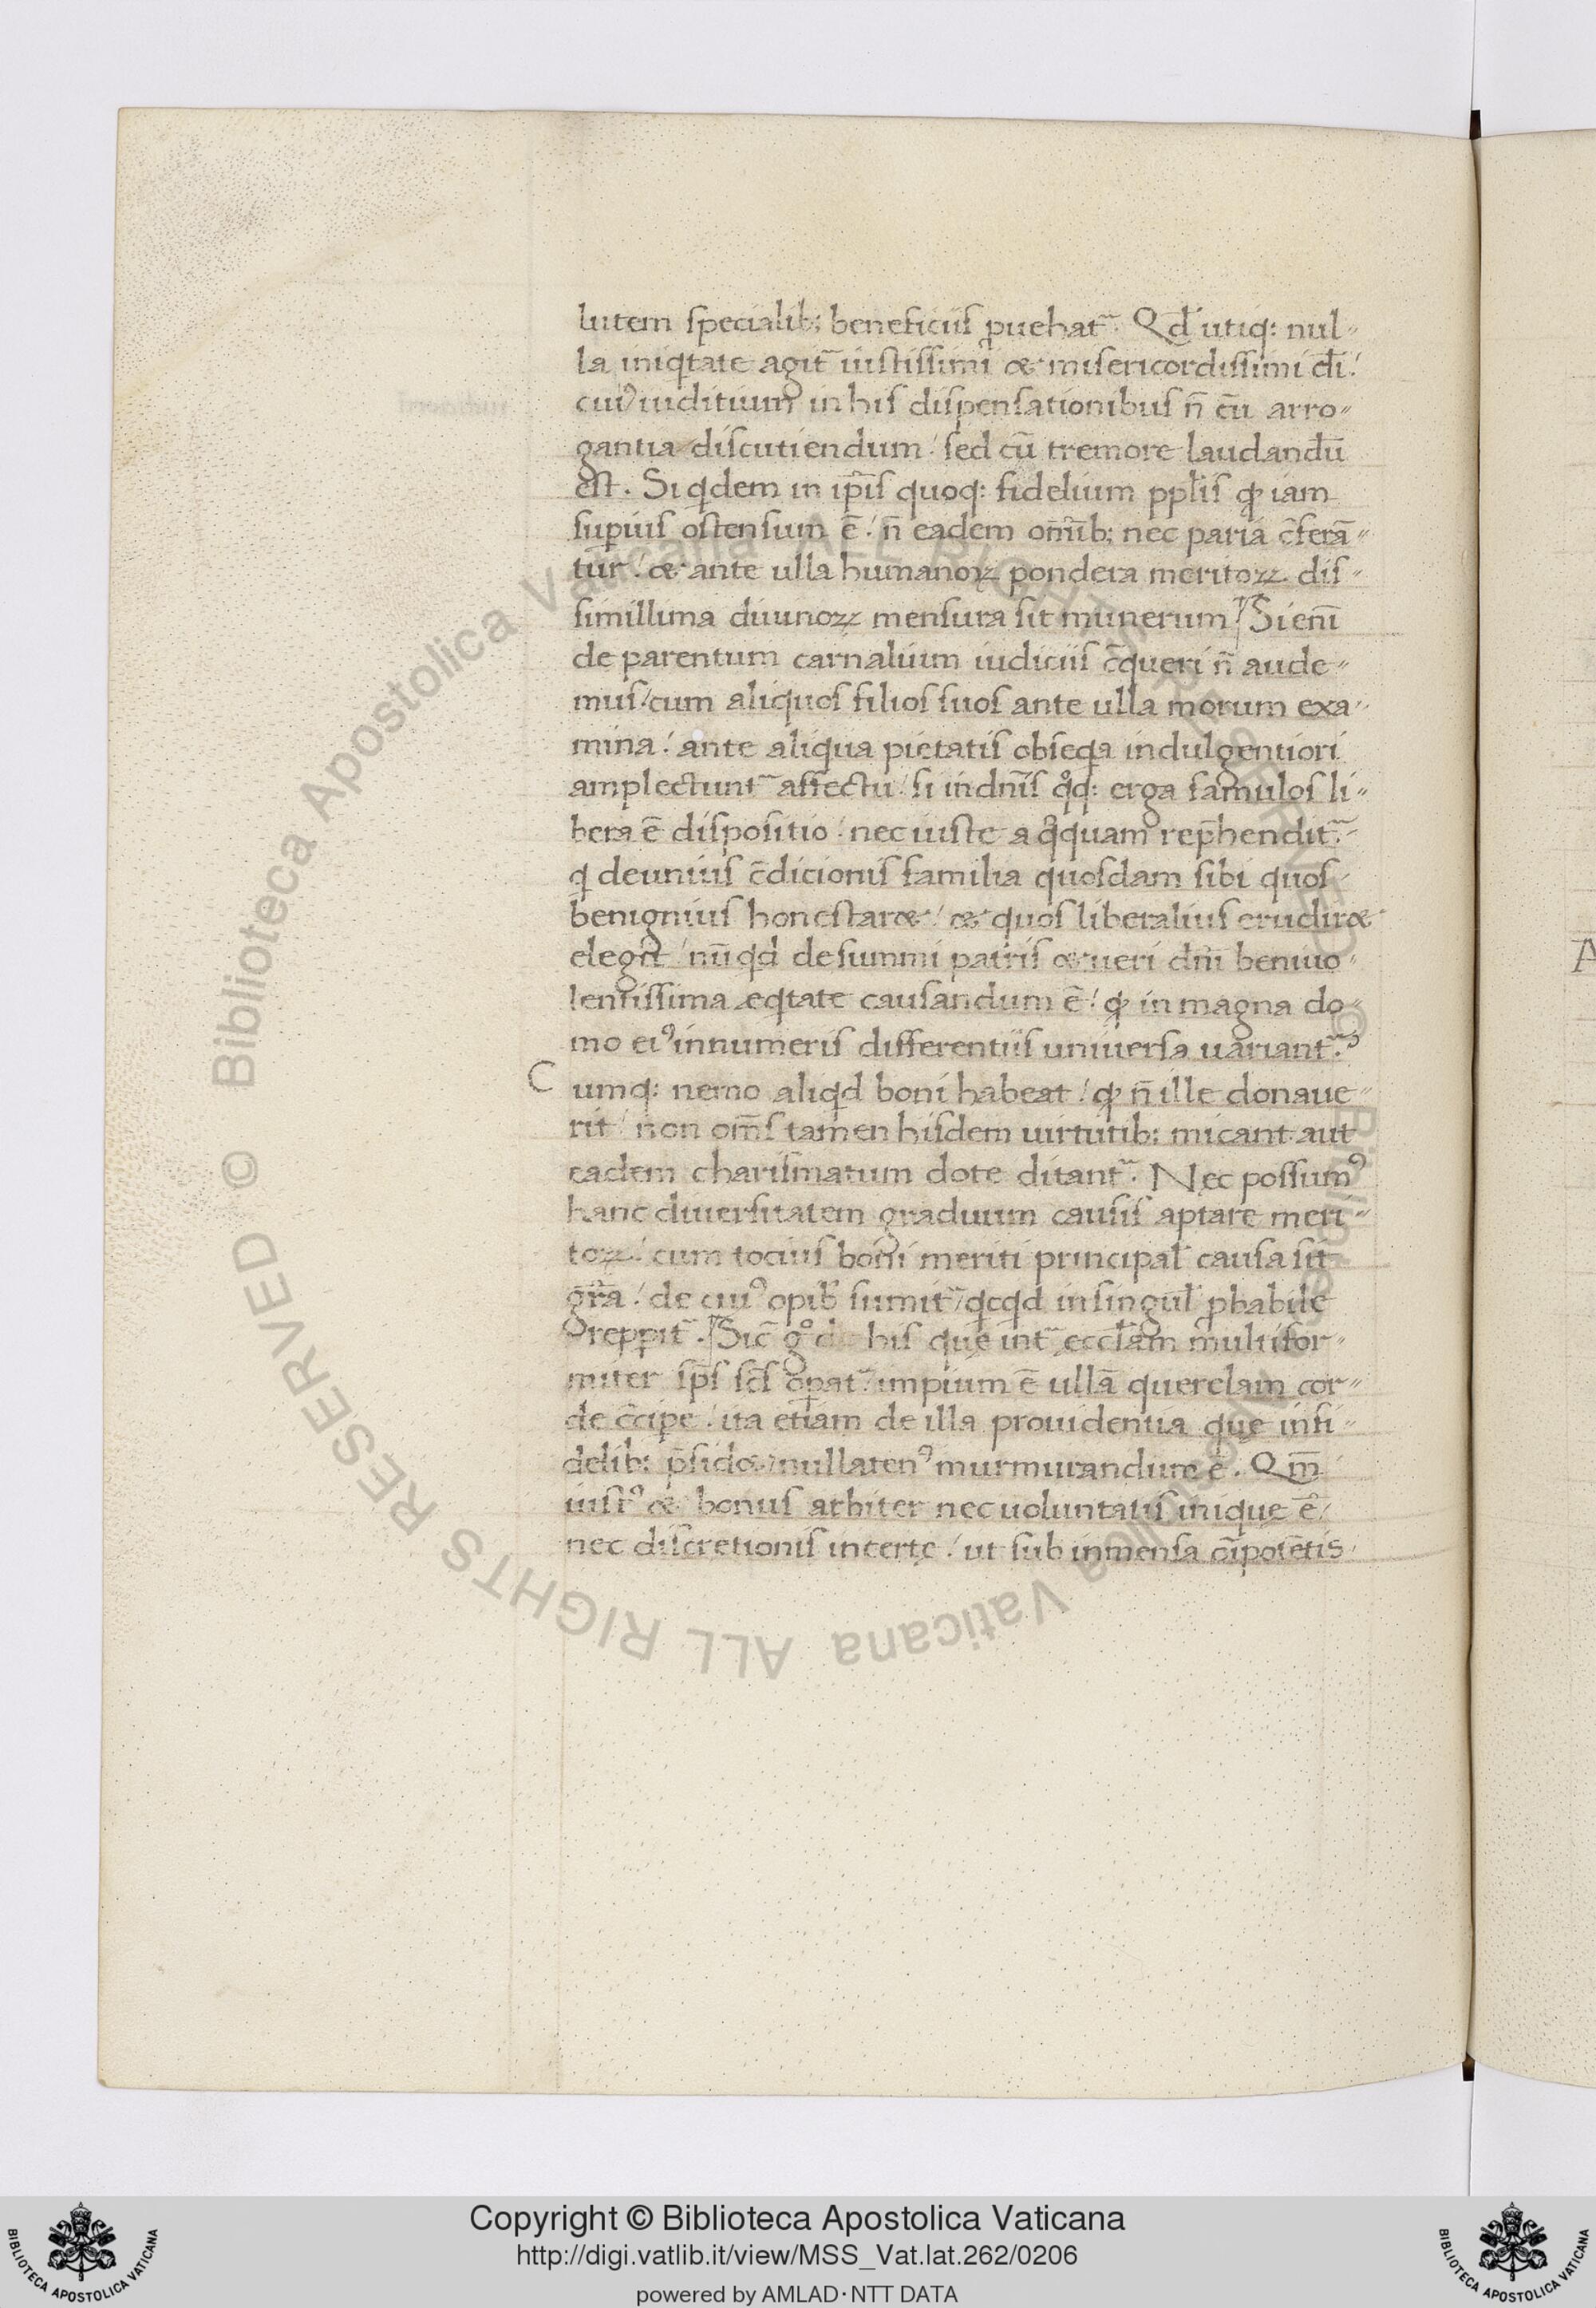 lutem specialib; beneficiis ꝓuehat᷑. Qd̕ utiq: nul-
la iniqtate agit᷑ iustissimi & misericordissimi dī:
cuiꝰ iuditium in his dispensationibus n̄ cū arro-
gantia discutiendum / sed cū tremore laudandū
est. Siqdem in ip̄is quoq: fidelium ppl̕is ꝙ iam
suꝑius ostensum ē / n̄ eadem om̄ib; nec paria c̄ferā-
tur / & ante ulla humanoꝝ pondera meritoꝝ dis-
simillima diuinoꝝ mensura sit munerum / Si eni̅
de parentum carnalium iudiciis c̄queri n̄ aude-
mus / cum aliquos filios suos ante ulla morum exa-
mina / ante aliqua pietatis obseqa indulgentiori
amplectunt᷑ affectu / si in dn̄is qͦq: erga famulos li-
bera ē dispositio / nec iuste a qͦquam rep̄hendit᷑
q de unius c̄dicionis familia quosdam sibi quos
benignius honestar& / & quos liberalius erudir&
elegit / nūqd de summi patris & ueri dn̄i beniuo-
lentissima eqtate causandum ē / ꝙ in magna do-
mo eiꝰ innumeris differentiis uniuersa uariant᷑.
Cumq: nemo aliqd boni habeat / ꝙ n̄ ille donaue-
rit / non om̄s tamen hisdem uirtutib: micant aut
eadem charismatum dote ditant᷑. Nec possumꝰ
hanc diuersitatem graduum causis aptare meri-
toꝝ / cum tocius boni meriti principal̕ causa sit
gr̄a / de cuiꝰ opib̕ sumit᷑ / qcqd in singul̕ ꝓbabile
reppit᷑. Sic̄ gͦ de his que int᷑ eccl̕am multifor-
miter sp̄s sc̄s oꝑat᷑ / impium ē ullā querelam cor-
de c̄cipe / ita etiam de illa prouidentia que infi-
delib: p̄sid& / nullatenꝰ murmurandum ē. Qm̄
iustꝰ & bonus arbiter nec uoluntatis inique ē /
nec discretionis incerte / ut sub inmensa oīpotētis
Copyright © Biblioteca Apostolica Vaticana
http://digi.vatlib.it/view/MSS_Vat.lat.262/0206
powered by AMLAD·NTT DATA
BIBLIOTECA APOSTOLICA VATICANA
BIBLIOTECA APOSTOLICA VATICANA
© Biblioteca Apostolica Vaticana ALL RIGHTS RESERVED © Biblioteca Apostolica Vaticana ALL RIGHTS RESERVED